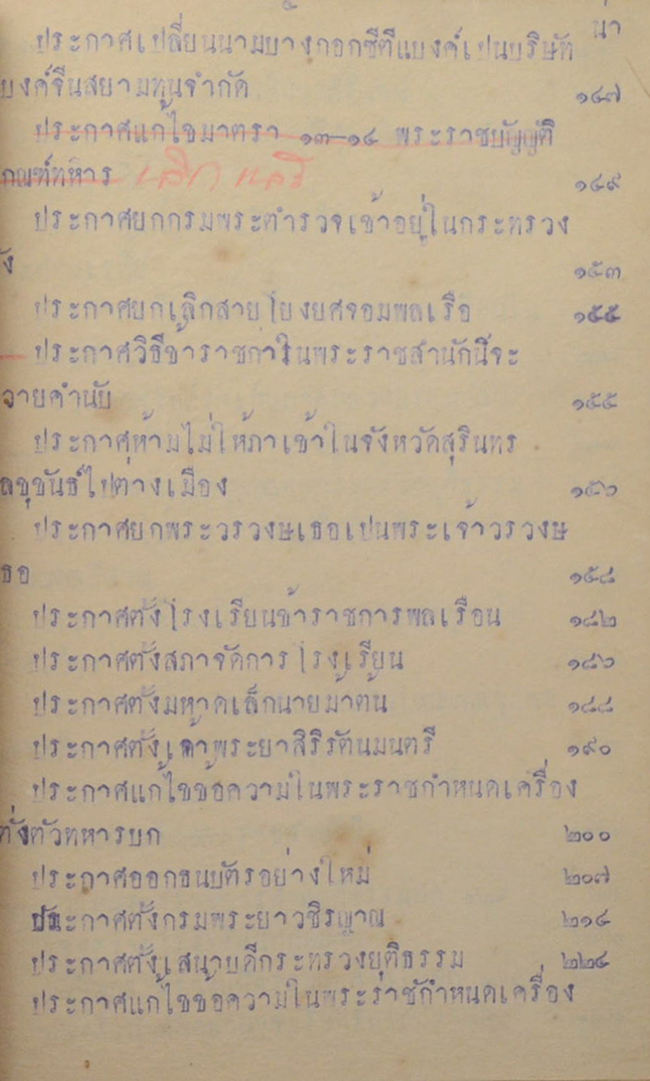 น่า
ประกาศเปลี่ยนนามบางกอกซีตีแบงค์เปนบริษัท
บงค์จีนสยามทุนจำกัด ๑๔๗
ประกาศแก้ไขมาตรา ๑๓–๑๔ พระราชบัญญัติ
กณฑ์ทหาร เลิกแล้ว ๑๔๙
ประกาศยกกรมพระตำรวจเข้าอยู่ในกระทรวง
วัง ๑๕๓
ประกาศยกเลิกสายโยงยศจอมพลเรือ ๑๕๕
ประกาศวิธีข้าราชการในพระราชสำนักนี้จะ
วายคำนับ ๑๕๕
ประกาศห้ามไม่ให้ภาเข้าในจังหวัดสุรินทร
ลขุขันธ์ไปต่างเมือง ๑๕๖
ประกาศยกพระวรวงษเธอเปนพระเจ้าวรวงษ
ธอ ๑๕๘
ประกาศตั้งโรงเรียนข้าราชการพลเรือน ๑๘๒
ประกาศตั้งสภาจัดการโรงเรียน ๑๘๖
ประกาศตั้งมหาดเล็กนายม้าต้น ๑๘๘
ประกาศตั้งเจ้าพระยาสิริรัตนมนตรี ๑๙๐
ประกาศแก้ไขข้อความในพระราชกำหนดเครื่อง
ต่งตัวทหารบก ๒๐๐
ประกาศออกธนบัตรอย่างใหม่ ๒๐๗
ประกาศตั้งกรมพระยาวชิรญาณ ๒๑๔
ประกาศตั้งเสนาบดีกระทรวงยุติธรรม ๒๒๔
ประกาศแก้ไขข้อความในพระราชกำหนดเครื่อง